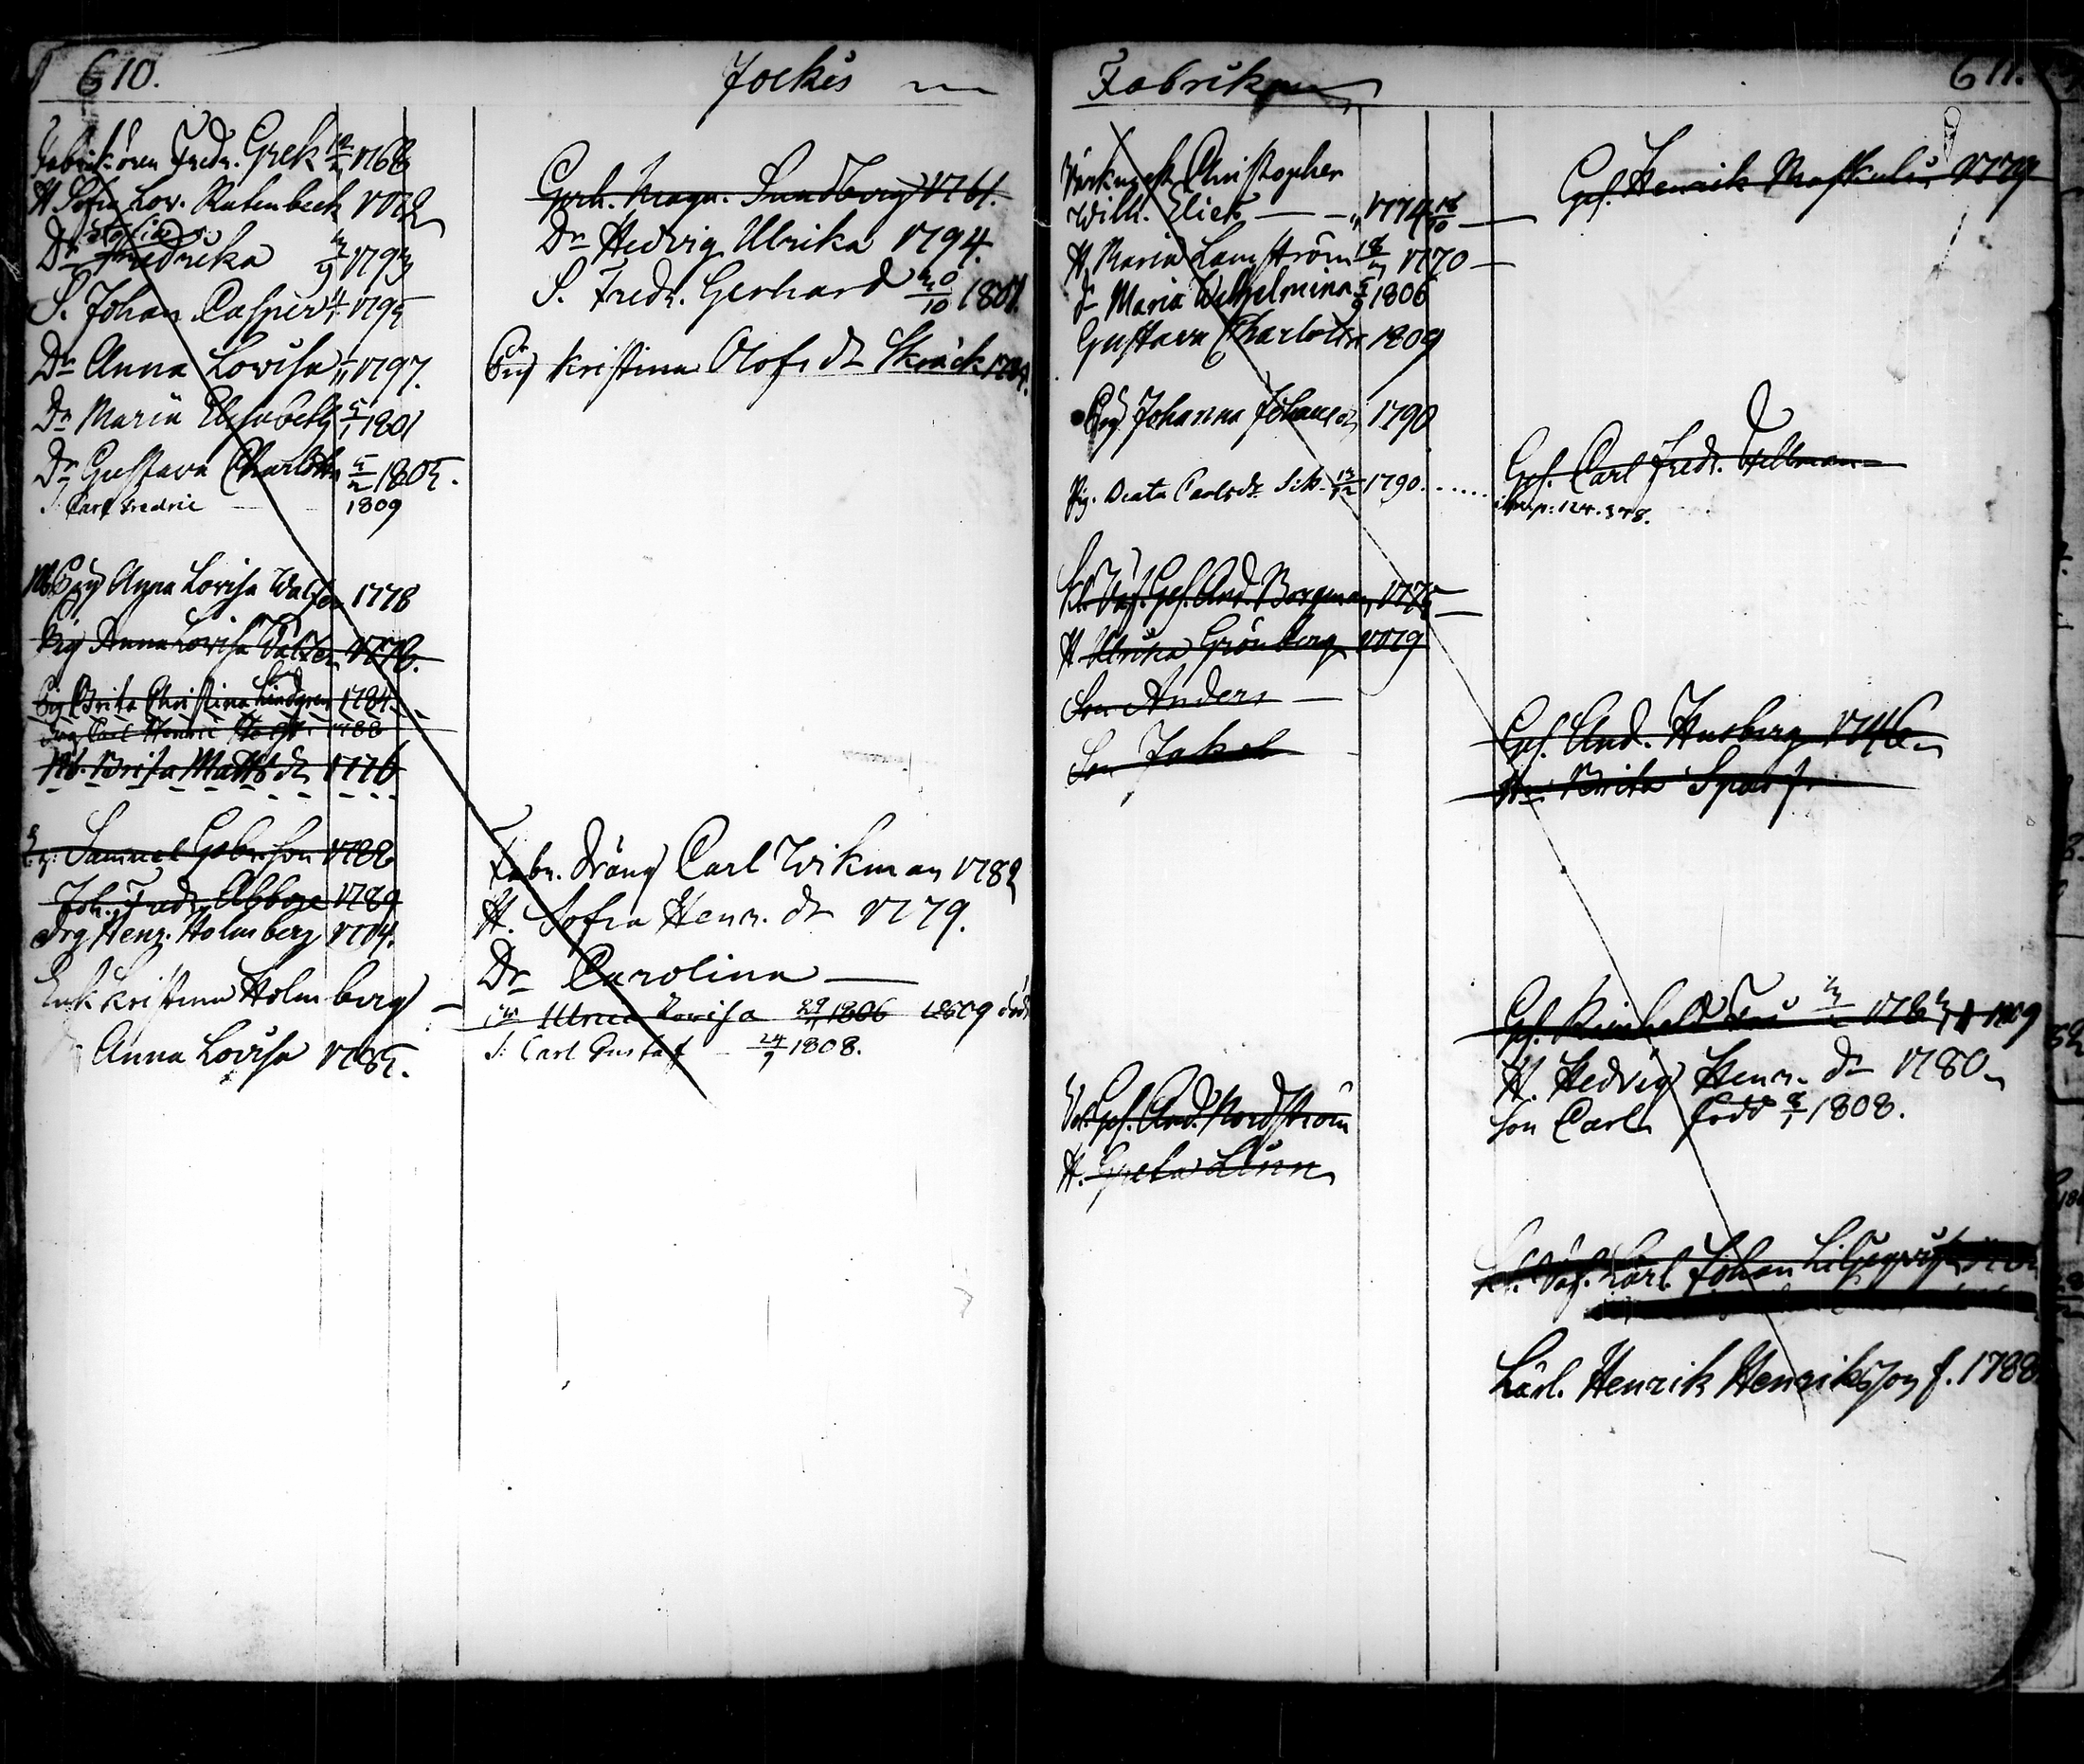 610.
Jockis
Fabriksören Fredr. Grek 1768
H Sofia Lov. Ratenbeck 1772
Dr Fredrika 1793
S. Johan Casper 1795
Dr Anna Lovisa 1797.
Dr Maria Elisabeth 5/1 1801
Dr Gustava Charlotta 5/2 1805.
S. Carl Fredric 1809
Pig Anna Lovisa 1778
Pig Anna Lovisa 1778.
Pig Brita Christina Lindgren 1784
Drg Carl Henric 1788
Brita Matts dr 1776
Samuel Gabr. son 1788
Joh. Fredr. Abborre 1789
Drg Henr. Holmberg 1774.
Enk. Kristina Holmberg
Anna Lovisa 1785.
Gerh. Magn. Sundberg 1761.
Dr Hedvig Ulrika 1794.
S. Fredr. Gerhard 20/10 1801.
Pig Kristina Olofs dr Skräck
Fabr. Dräng Carl Wikman 1782
H. Sofia Henr. dr 1779.
Dr Carolina
Ulrica Lovisa 1806 1809 död
S. Carl Gustaf 24/9 1808.
Fabriken
611.
Christopher
Wilh. Elick 1774
H Maria Lamström 1770
dr Maria Wilhelmina 1806
Gustava Charlotta 1809
Pig Johanna Johans dr 1790
Pig. Beata Carlsdr 1790.
Gef. And. Borgman 1775
H Ulrika Grönberg 1779
Son Anders
Son Jakob
Gef. And. Nordström
H. Greta Linn
Gef. Henrik 1779
Gef. Carl Fredr. Hellman
p: 124. 348.
Gef. And. Husberg 1746
Brita Sparf
Gef. Reinhold 1809
H. Hedvig Henr. dr 1780
Son Carl född 8/1 1808.
Lärl. Johan
Lärl. Henrik Henriksson f. 1788